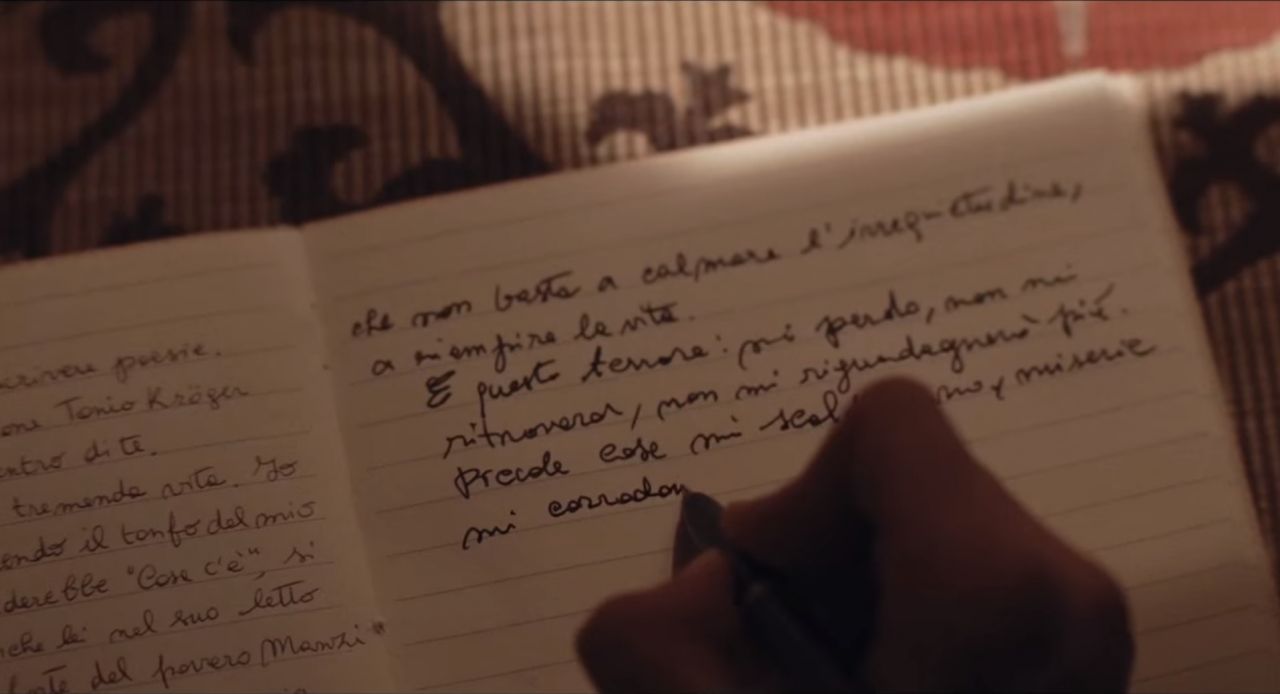 scrivere poesie.
Tonio Kröger
dentro di te.
tremenda vita. Io
il tonfo del mio
"Cosa c'è", si
nel suo letto
del povero Manzi"
che non basta a calmare l'irrequietudine,
a riempire la vita.
E questo terrore: mi perdo, non mi
ritroverò, non mi riguadagnerò più.
Piccole cose mi miserie
mi corrodon